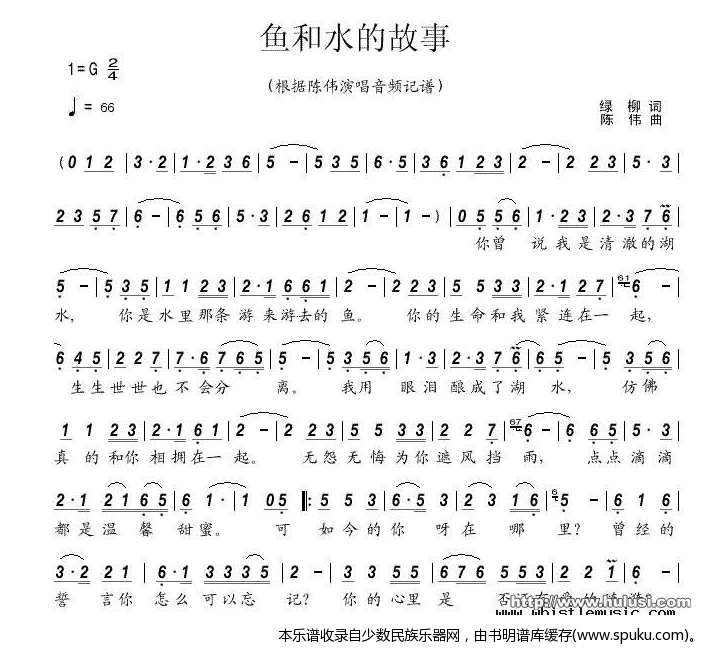 鱼和水的故事
1=G 2/4
(根据陈伟演唱音频记谱)
♩= 66
绿 柳 词
陈 伟 曲
(0 1 2 | 3·2 | 1·2 3 6 | 5 - | 5 3 5 | 6·5 | 3 6 1 2 3 | 2 - | 2 2 3 | 5·3 |
2 3 5 7 | 6 - | 6 5 6 | 5·3 | 2 6 1 2 | 1 - | 1 - ) | 0 5 5 6 | 1·2 3 | 2·3 7 6 |
你曾 说我是清澈的湖
5 - | 5 3 5 | 1 1 2 3 | 2·1 6 6 1 | 2 - | 2 2 3 | 5 5 3 5 3 3 | 2·1 2 7 | 6 - |
水, 你是水里那条游来游去的鱼。 你的生命和我紧连在一起,
6 4 5 | 2 2 7 | 7·6 7 6 5 | 5 - | 5 3 5 | 1·2 3 | 2·3 7 6 | 6 5 · | 5 5 6 |
生生世世也不会分 离。 我用 眼泪酿成了湖 水, 仿佛
1 1 2 3 | 2·1 6 1 | 2 - | 2 2 3 | 5 5 3 3 | 2 2 7 | 6 - | 6 6 5 | 5 3 3 |
真的和你相拥在一起。 无怨无悔为你遮风挡 雨, 点点滴滴
2·1 2 1 6 5 | 6 1 · | 1 0 5 |: 5 5 3 | 6·5 3 3 | 2 3 1 6 | 5 - | 6 1 6 |
都是温馨甜蜜。 可 如今的你呀在哪 里? 曾经的
3·2 2 1 | 6·1 3 3 3 5 | 2 - | 2 1 2 | 3 5 1 2 | 5 - | 6 7 6 5 5 3 | 2 1 |
誓言你怎么可以忘 记? 你的心里是
http://www.hulusi.com
www.whistlemusic.com
本乐谱收录自少数民族乐器网，由书明谱库缓存(www.spuku.com).